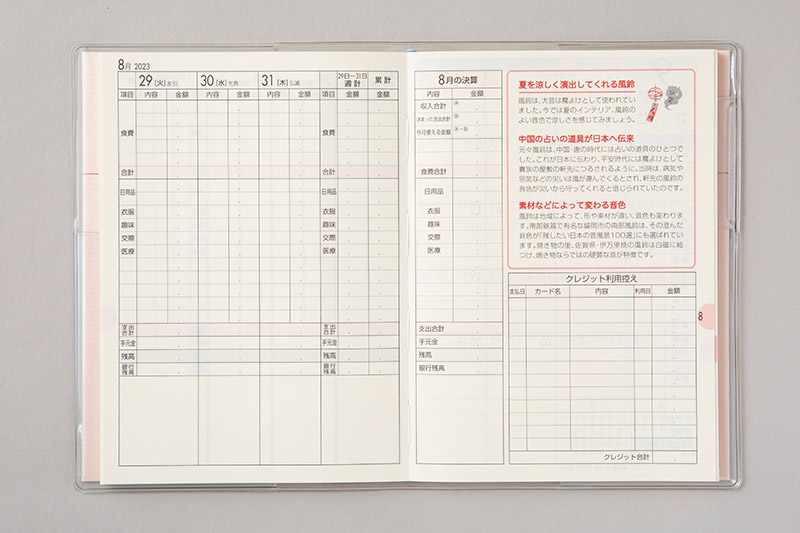 8月 2023
29 [火] 友引 30 [水] 先負 31 [木] 仏滅 29日〜31日 週計 累計
項目 内容 金額 内容 金額 内容 金額 項目 金額 金額
食費 食費
合計 合計
日用品 日用品
衣服 衣服
趣味 趣味
交際 交際
医療 医療
支出合計 支出合計
手元金 手元金
残高 残高
銀行残高 銀行残高
8月の決算
内容 金額
収入合計 Ⓐ
決まった支出合計 Ⓑ
今月使える金額 Ⓐ−Ⓑ
食費合計
日用品
衣服
趣味
交際
医療
支出合計
手元金
残高
銀行残高
夏を涼しく演出してくれる風鈴
風鈴は、大昔は魔よけとして使われてい
ました。今では夏のインテリア。風鈴の
よい音色で涼しさを感じてみましょう。
中国の占いの道具が日本へ伝来
元々風鈴は、中国・唐の時代には占いの道具のひとつで
した。これが日本に伝わり、平安時代には魔よけとして
貴族の屋敷の軒先につるされるように。当時は、病気や
邪気などの災いは風が運んでくるとされ、軒先の風鈴の
音色が災いから守ってくれると信じられていたのです。
素材などによって変わる音色
風鈴は地域によって、形や素材が違い、音色も変わりま
す。南部鉄器で有名な盛岡市の南部風鈴は、その澄んだ
音色が「残したい日本の音風景100選」にも選ばれてい
ます。焼き物の里、佐賀県・伊万里焼の風鈴は白磁に絵
つけ、焼き物ならではの硬質な音が特徴です。
クレジット利用控え
支払日 カード名 内容 利用日 金額
クレジット合計
8